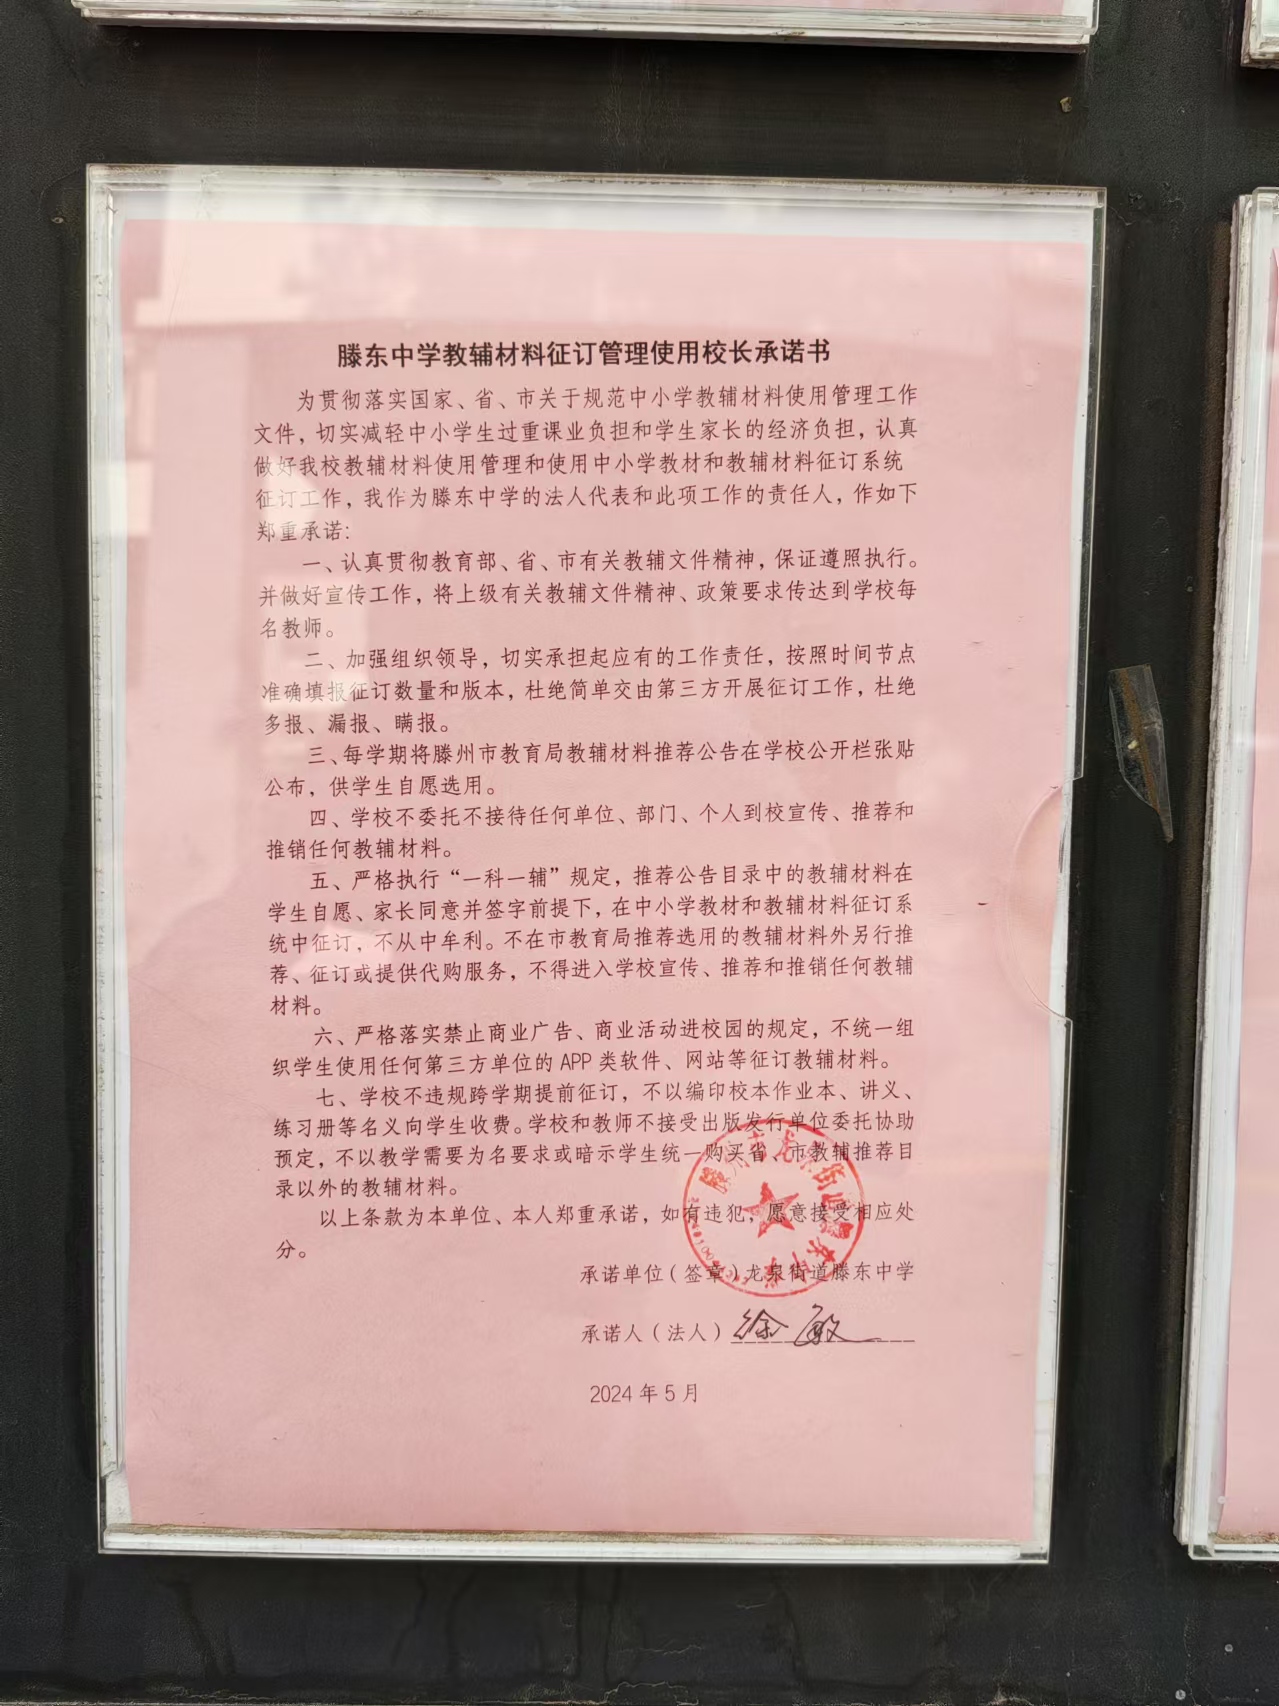 滕东中学教辅材料征订管理使用校长承诺书
为贯彻落实国家、省、市关于规范中小学教辅材料使用管理工作
文件，切实减轻中小学生过重课业负担和学生家长的经济负担，认真
做好我校教辅材料使用管理和使用中小学教材和教辅材料征订系统
征订工作，我作为滕东中学的法人代表和此项工作的责任人，作如下
郑重承诺：
一、认真贯彻教育部、省、市有关教辅文件精神，保证遵照执行。
并做好宣传工作，将上级有关教辅文件精神、政策要求传达到学校每
名教师。
二、加强组织领导，切实承担起应有的工作责任，按照时间节点
准确填报征订数量和版本，杜绝简单交由第三方开展征订工作，杜绝
多报、漏报、瞒报。
三、每学期将滕州市教育局教辅材料推荐公告在学校公开栏张贴
公布，供学生自愿选用。
四、学校不委托不接待任何单位、部门、个人到校宣传、推荐和
推销任何教辅材料。
五、严格执行“一科一辅”规定，推荐公告目录中的教辅材料在
学生自愿、家长同意并签字前提下，在中小学教材和教辅材料征订系
统中征订，不从中牟利。不在市教育局推荐选用的教辅材料外另行推
荐、征订或提供代购服务，不得进入学校宣传、推荐和推销任何教辅
材料。
六、严格落实禁止商业广告、商业活动进校园的规定，不统一组
织学生使用任何第三方单位的 APP 类软件、网站等征订教辅材料。
七、学校不违规跨学期提前征订，不以编印校本作业本、讲义、
练习册等名义向学生收费。学校和教师不接受出版发行单位委托协助
预定，不以教学需要为名要求或暗示学生统一购买省、市教辅推荐目
录以外的教辅材料。
以上条款为本单位、本人郑重承诺，如有违犯，愿意接受相应处
分。
滕州市龙泉街道滕东中学
承诺单位（签章）龙泉街道滕东中学
承诺人（法人）徐敏
2024 年 5 月